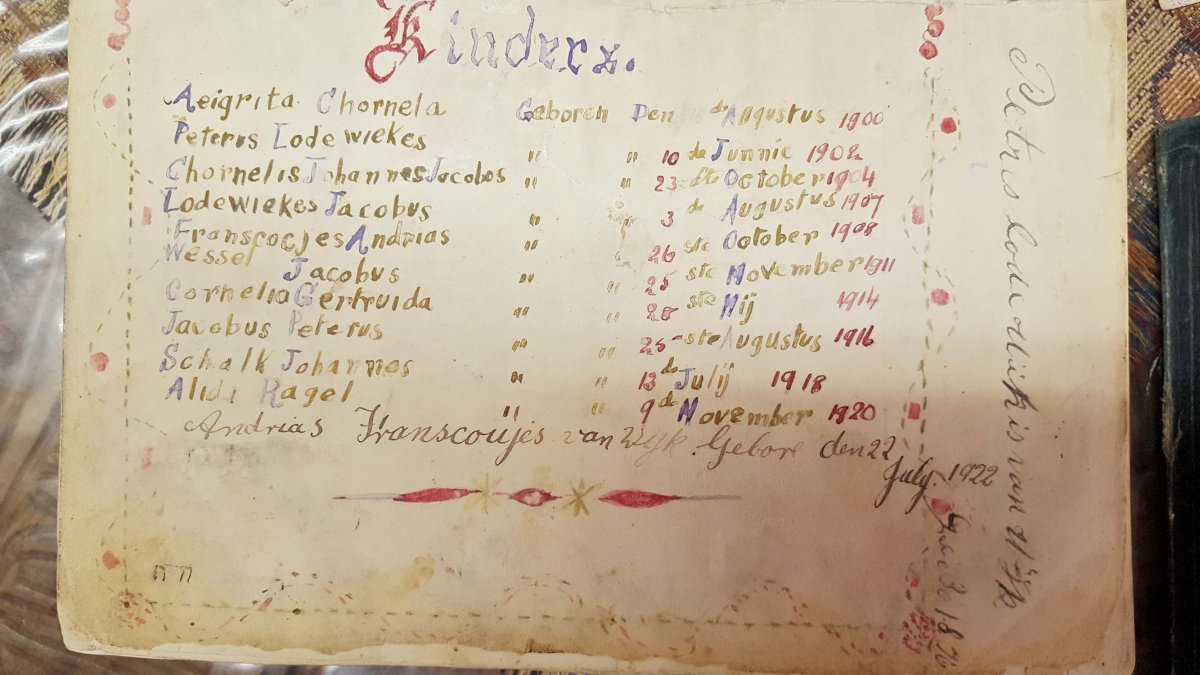 Kinders.
Aeigrita Chornela Geboren Den de Augustus 1900
Peterus Lodewiekes " " 10 de Junnie 1902
Chornelis Johannes Jacobes " " 23 ste October 1904
Lodewiekes Jacobus " " 3 de Augustus 1907
Franscocjes Andrias " " 26 ste October 1908
Wessel Jacobus " " 25 ste November 1911
Cornelia Gertruida " " 28 ste Mij 1914
Jacobus Peterus " " 25 ste Augustus 1916
Schalk Johannes " " 13 de Julij 1918
Alida Ragel " " 9 de November 1920
Andrias Franscoujes van Wyk. Gebore den 22
July. 1922
van Wijk